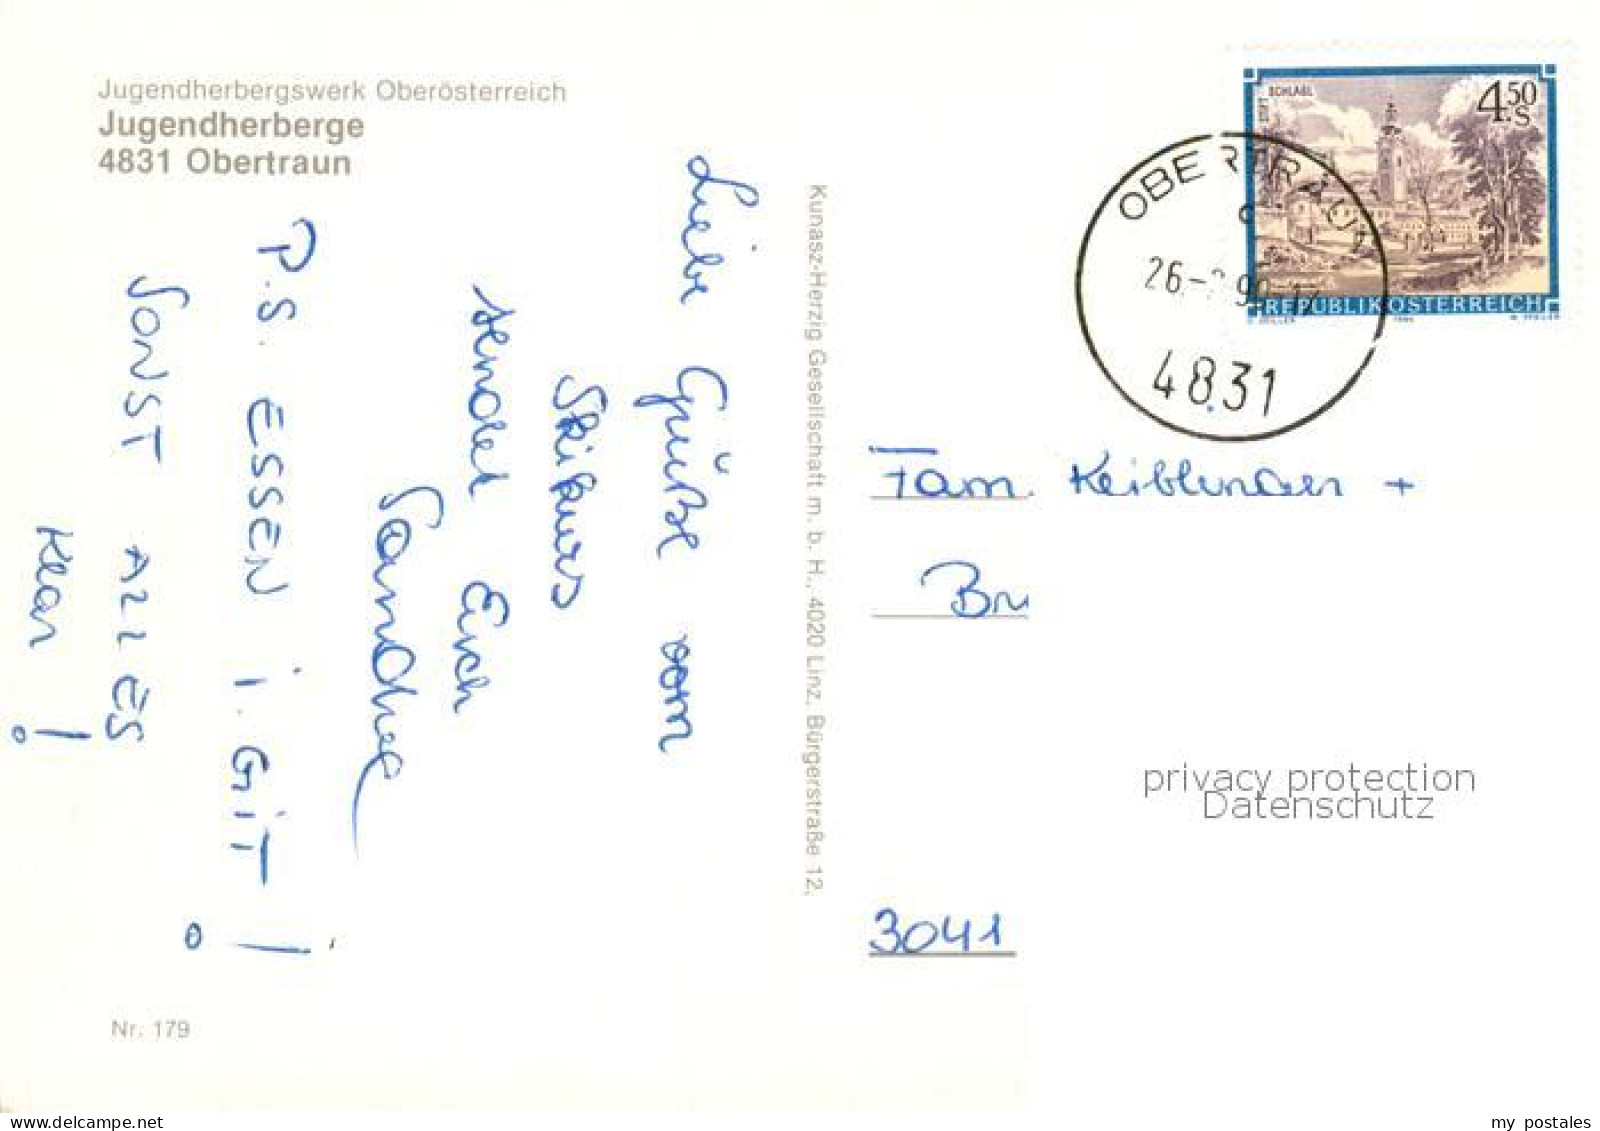 Jugendherbergswerk Oberösterreich
Jugendherberge
4831 Obertraun
Liebe Grüße vom
Skikurs
sendet Euch
P.S. ESSEN i. GiT!
SONST ALLES
klar!
Kunasz-Herzig Gesellschaft m. b. H., 4020 Linz, Bürgerstraße 12,
Nr. 179
STIFT SCHLÄGL
4.50 S
REPUBLIK ÖSTERREICH
OBERTRAUN
26. 90-12
4831
Fam. Keiblinger +
3041
privacy protection
Datenschutz
delcampe.net
my_postales